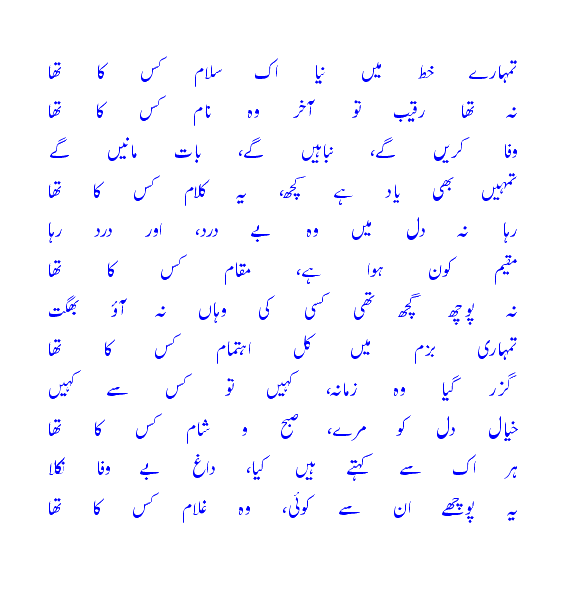 تمہارے خط میں نیا اک سلام کس کا تھا
نہ تھا رقیب تو آخر وہ نام کس کا تھا
وفا کریں گے، نباہیں گے، بات مانیں گے
تمہیں بھی یاد ہے کچھ، یہ کلام کس کا تھا
رہا نہ دل میں وہ بے درد، اور درد رہا
مقیم کون ہوا ہے، مقام کس کا تھا
نہ پوچھ گچھ تھی کسی کی وہاں نہ آؤ بھگت
تمہاری بزم میں کل اہتمام کس کا تھا
گزر گیا وہ زمانہ، کہیں تو کس سے کہیں
خیال دل کو مرے، صبح و شام کس کا تھا
ہر اک سے کہتے ہیں کیا، داغ بے وفا نکلا
یہ پوچھے ان سے کوئی، وہ غلام کس کا تھا